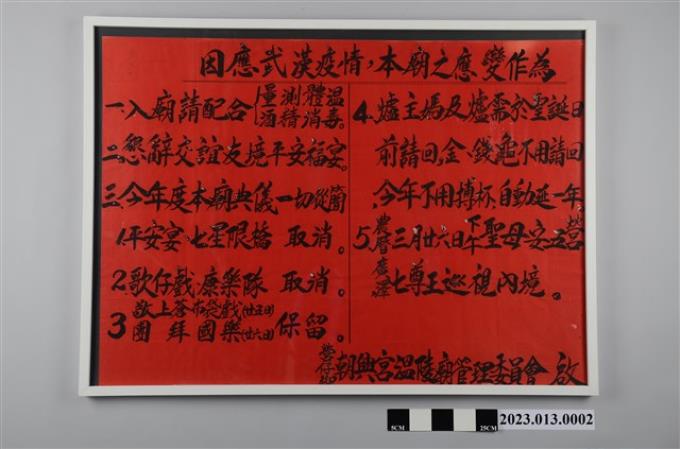 因應武漢疫情，本廟之應變作為
一、入廟請配合量測體溫酒精消毒。
二、懇辭交誼友境平安福宴。
三、今年度本廟典儀一切從簡
1.平安宴、七星限橋 取消。
2.歌仔戲康樂隊 取消。
3敬上蒼布袋戲(廿五日)團拜國樂(廿六日)保留。
4.爐主媽及爐需於聖誕日
前請回,金、錢龜不用請回
今年不用搏杯,自動延一年
5.農曆三月廿六日下午聖母安五營
廣澤七尊王巡視內境。
營仔腳朝興宮溫陵廟管理委員會 啟
5CM
25CM
2023.013.0002